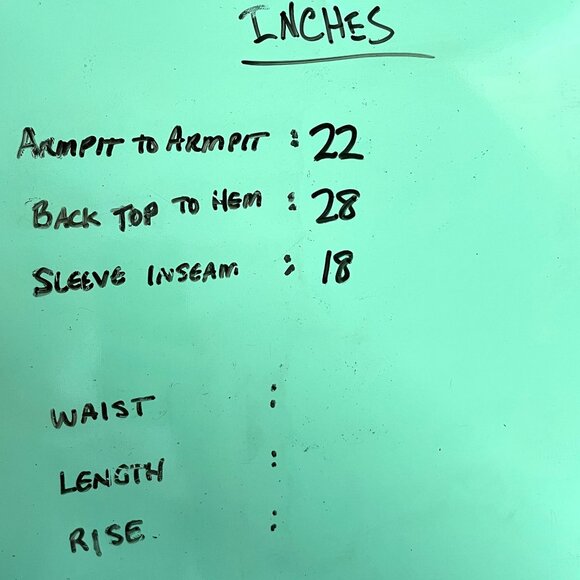 INCHES
ARMPIT TO ARMPIT : 22
BACK TOP TO HEM : 28
SLEEVE INSEAM : 18
WAIST :
LENGTH :
RISE :